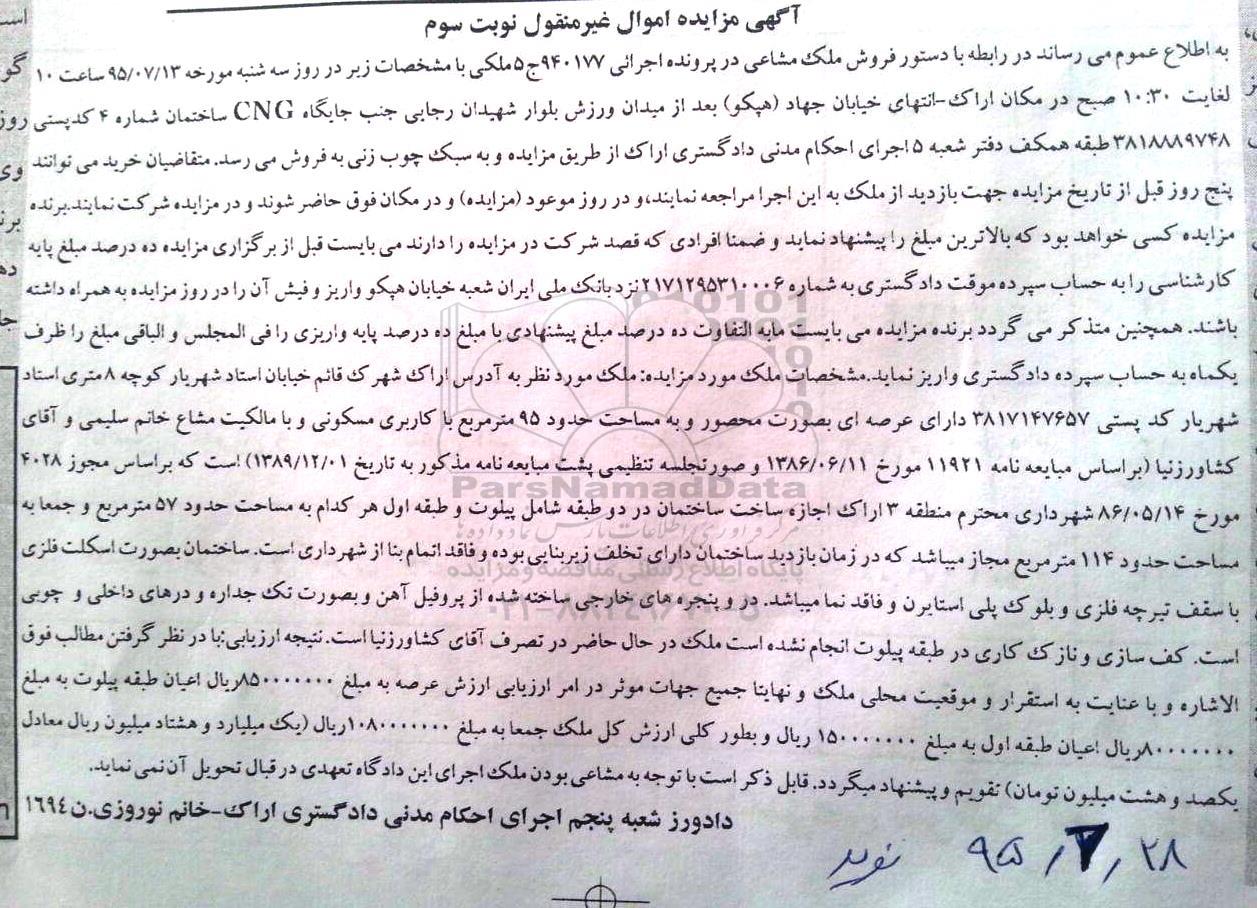 آگهی مزایده اموال غیرمنقول نوبت سوم
به اطلاع عموم می رساند در رابطه با دستور فروش ملک مشاعی در پرونده اجرائی ۹۴۰۱۷۷ج۵ملکی با مشخصات زیر در روز سه شنبه مورخه ۹۵/۰۷/۱۳ ساعت ۱۰
لغایت ۱۰:۳۰ صبح در مکان اراک-انتهای خیابان جهاد (هپکو) بعد از میدان ورزش بلوار شهیدان رجایی جنب جایگاه CNG ساختمان شماره ۴ کدپستی
۳۸۱۸۸۸۹۷۴۸ طبقه همکف دفتر شعبه ۵ اجرای احکام مدنی دادگستری اراک از طریق مزایده و به سبک چوب زنی به فروش می رسد. متقاضیان خرید می توانند
پنج روز قبل از تاریخ مزایده جهت بازدید از ملک به این اجرا مراجعه نمایند،و در روز موعود (مزایده) و در مکان فوق حاضر شوند و در مزایده شرکت نمایند.برنده
مزایده کسی خواهد بود که بالاترین مبلغ را پیشنهاد نماید و ضمنا افرادی که قصد شرکت در مزایده را دارند می بایست قبل از برگزاری مزایده ده درصد مبلغ پایه
کارشناسی را به حساب سپرده موقت دادگستری به شماره ۲۱۷۱۲۹۵۳۱۰۰۰۶ نزد بانک ملی ایران شعبه خیابان هپکو واریز و فیش آن را در روز مزایده به همراه داشته
باشند. همچنین متذکر می گردد برنده مزایده می بایست مابه التفاوت ده درصد مبلغ پیشنهادی با مبلغ ده درصد پایه واریزی را فی المجلس و الباقی مبلغ را ظرف
یکماه به حساب سپرده دادگستری واریز نماید.مشخصات ملک مورد مزایده: ملک مورد نظر به آدرس اراک شهرک قائم خیابان استاد شهریار کوچه ۸ متری استاد
شهریار کد پستی ۳۸۱۷۱۴۷۶۵۷ دارای عرصه ای بصورت محصور و به مساحت حدود ۹۵ مترمربع با کاربری مسکونی و با مالکیت مشاع خانم سلیمی و آقای
کشاورزنیا (براساس مبایعه نامه ۱۱۹۲۱ مورخ ۱۳۸۶/۰۶/۱۱ و صورتجلسه تنظیمی پشت مبایعه نامه مذکور به تاریخ ۱۳۸۹/۱۲/۰۱) است که براساس مجوز ۴۰۲۸
مورخ ۸۶/۰۵/۱۴ شهرداری محترم منطقه ۳ اراک اجازه ساخت ساختمان در دو طبقه شامل پیلوت و طبقه اول هر کدام به مساحت حدود ۵۷ مترمربع و جمعا به
مساحت حدود ۱۱۴ مترمربع مجاز میباشد که در زمان بازدید ساختمان دارای تخلف زیربنایی بوده و فاقد اتمام بنا از شهرداری است. ساختمان بصورت اسکلت فلزی
با سقف تیرچه فلزی و بلوک پلی استایرن و فاقد نما میباشد. در و پنجره های خارجی ساخته شده از پروفیل آهن و بصورت تک جداره و درهای داخلی و چوبی
است. کف سازی و نازک کاری در طبقه پیلوت انجام نشده است ملک در حال حاضر در تصرف آقای کشاورزنیا است.نتیجه ارزیابی:با در نظر گرفتن مطالب فوق
الاشاره و با عنایت به استقرار و موقعیت محلی ملک و نهایتا جمیع جهات موثر در امر ارزیابی ارزش عرصه به مبلغ ۸۵۰۰۰۰۰۰۰ریال اعیان طبقه پیلوت به مبلغ
۸۰۰۰۰۰۰۰ریال اعیان طبقه اول به مبلغ ۱۵۰۰۰۰۰۰۰ ریال و بطور کلی ارزش کل ملک جمعا به مبلغ ۱۰۸۰۰۰۰۰۰۰ریال (یک میلیارد و هشتاد میلیون ریال معادل
یکصد و هشت میلیون تومان) تقویم و پیشنهاد میگردد. قابل ذکر است با توجه به مشاعی بودن ملک اجرای این دادگاه تعهدی در قبال تحویل آن نمی نماید.
دادورز شعبه پنجم اجرای احکام مدنی دادگستری اراک-خانم نوروزی.ن ۱۶۹۴
ParsNamadData
پایگاه اطلاع رسانی مناقصه و مزایده
۹۵/۴/۲۸